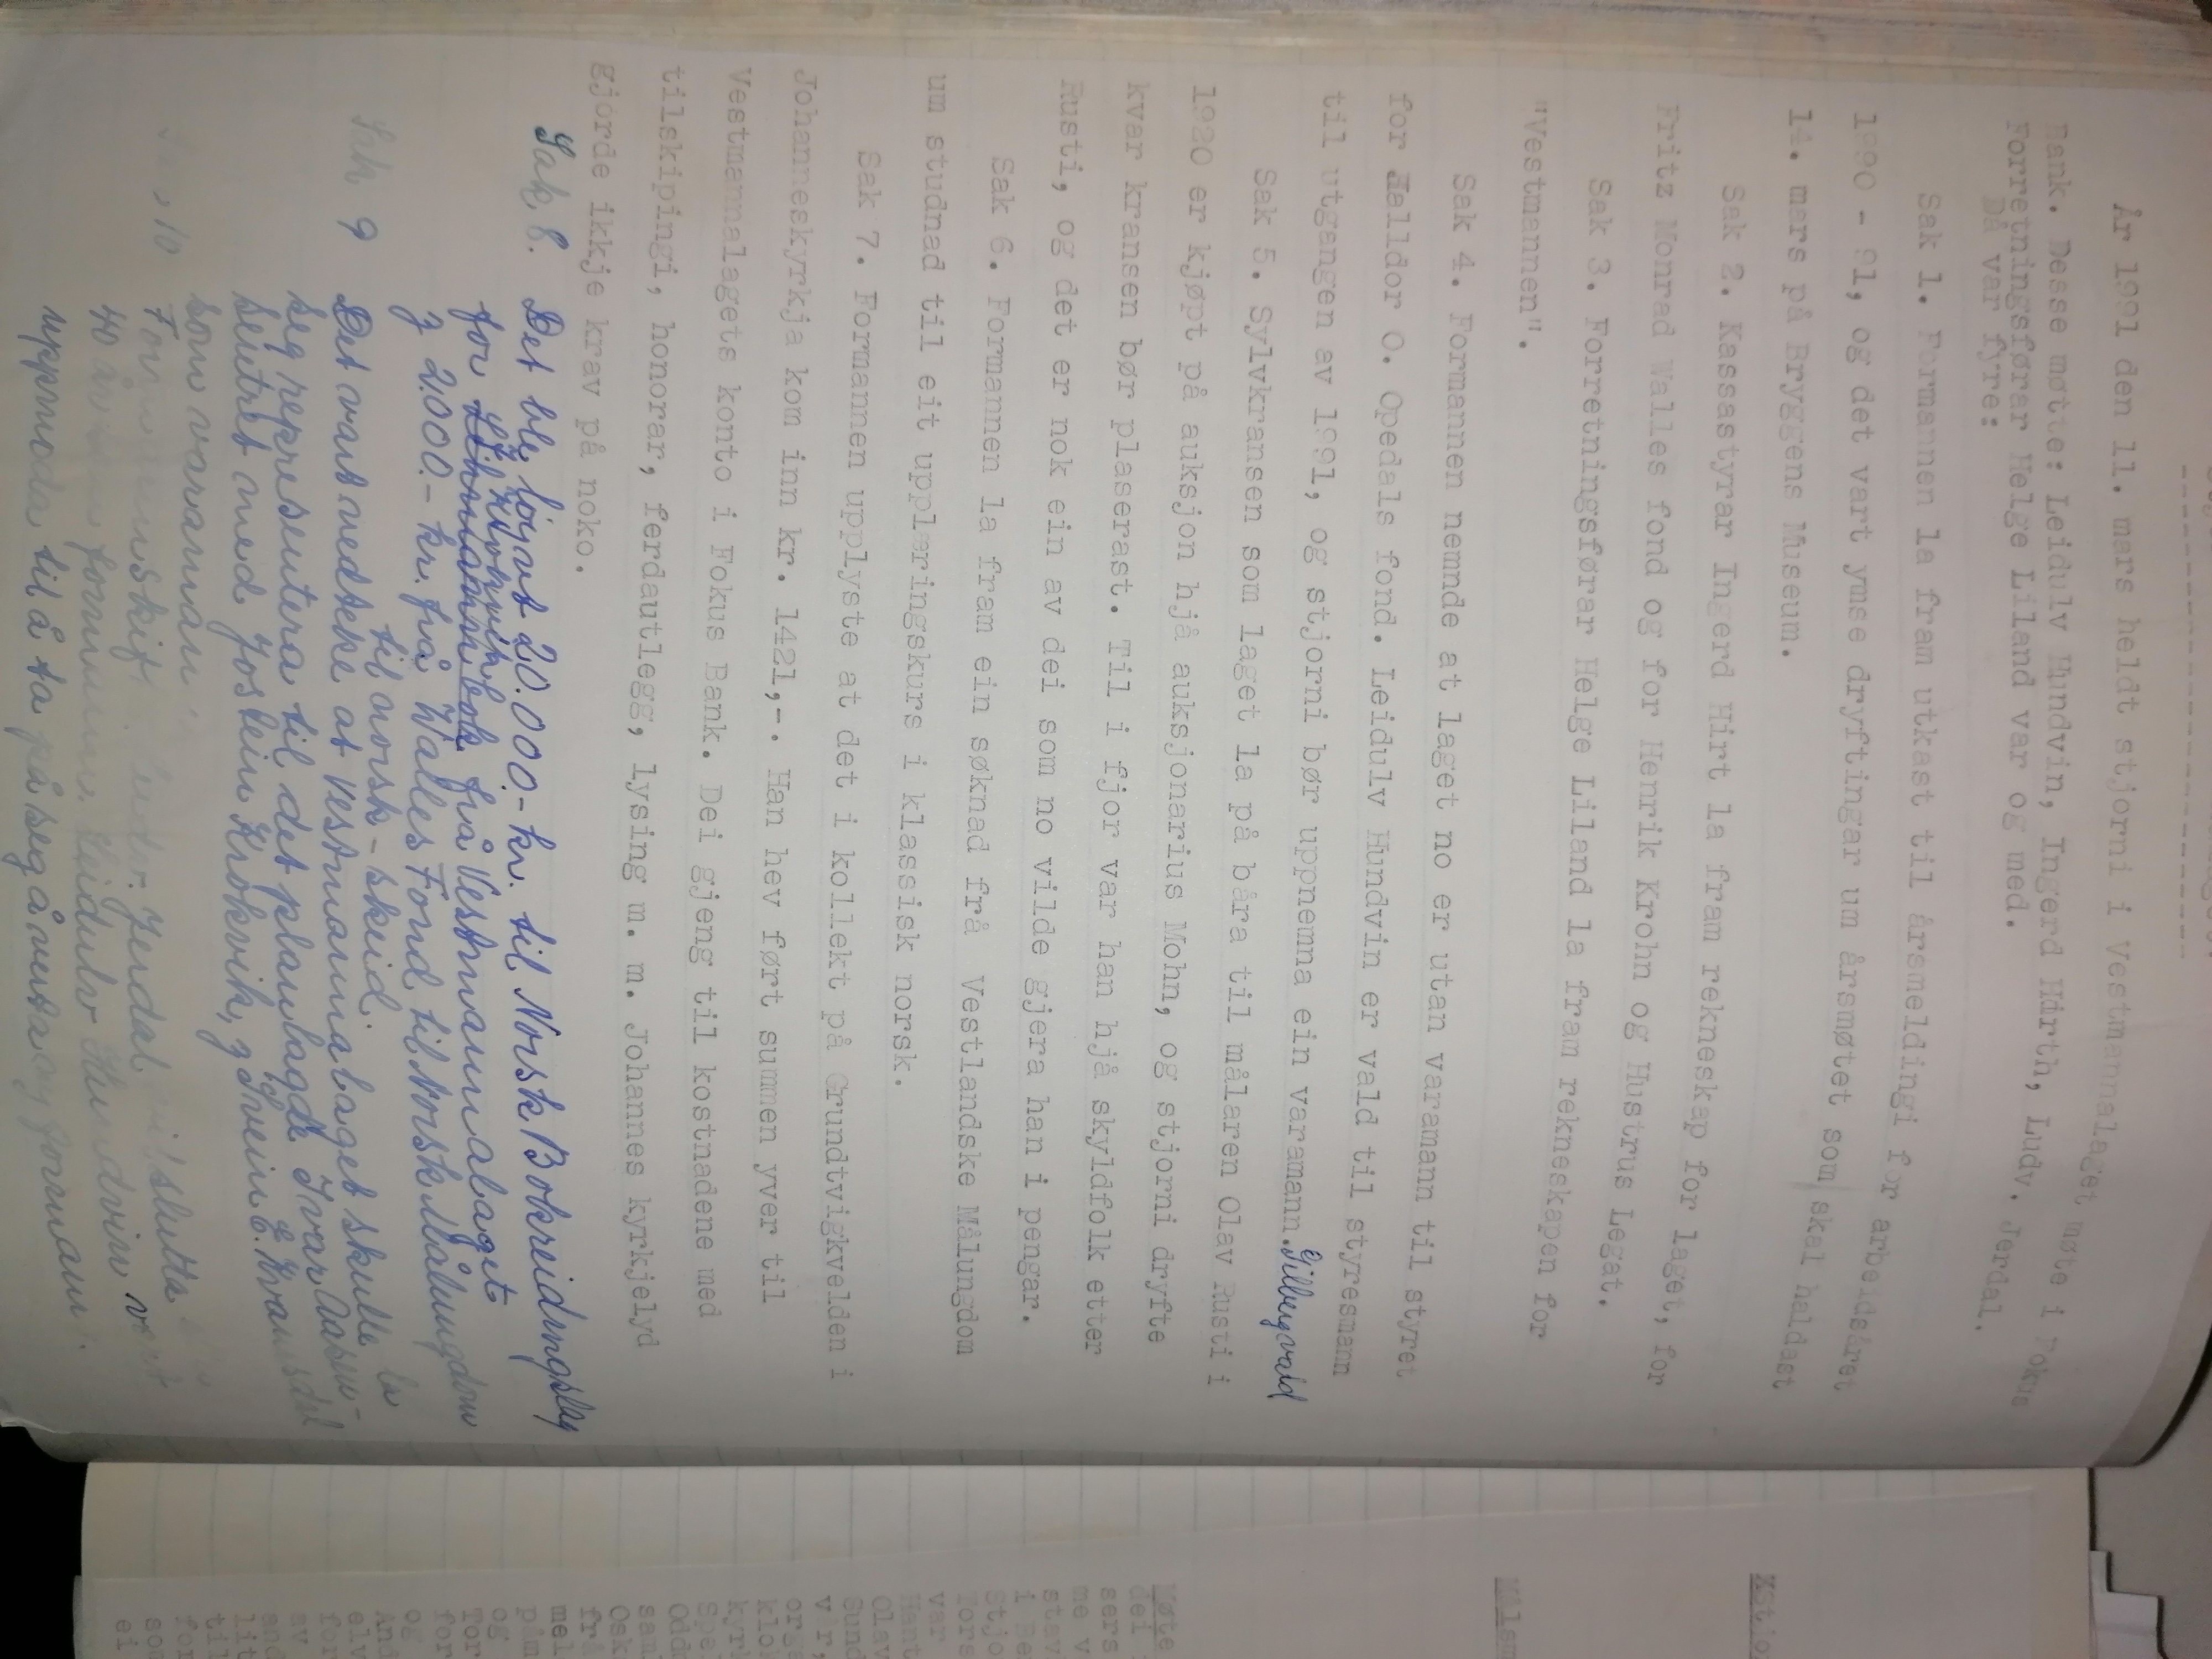 År 1991 den 11. mars heldt stjorni i Vestmannalaget møte i Fokus
Bank. Desse møtte: Leidulv Hundvin, Ingerd Hirth, Ludv. Jerdal.
Forretningsførar Helge Liland var og med.
Då var fyre:
Sak 1. Formannen la fram utkast til årsmeldingi for arbeidsåret
1990 - 91, og det vart ymse dryftingar um årsmøtet som skal haldast
14. mars på Bryggens Museum.
Sak 2. Kassastyrar Ingerd Hirt la fram rekneskap for laget, for
Fritz Monrad Walles fond og for Henrik Krohn og Hustrus Legat.
Sak 3. Forretningsførar Helge Liland la fram rekneskapen for
"Vestmannen".
Sak 4. Formannen nemnde at laget no er utan varamann til styret
for Halldor O. Opedals fond. Leidulv Hundvin er vald til styresmann
til utgangen av 1991, og stjorni bør uppnemna ein varamann.
Sak 5. Sylvkransen som laget la på båra til målaren Olav Rusti i
1920 er kjøpt på auksjon hjå auksjonarius Mohn, og stjorni dryfte
kvar kransen bør plaserast. Til i fjor var han hjå skyldfolk etter
Rusti, og det er nok ein av dei som no vilde gjera han i pengar.
Sak 6. Formannen la fram ein søknad frå Vestlandske Målungdom
um studnad til eit upplæringskurs i klassisk norsk.
Sak 7. Formannen upplyste at det i kollekt på Grundtvigkvelden i
Johanneskyrkja kom inn kr. 1421,-. Han hev ført summen yver til
Vestmannalagets konto i Fokus Bank. Dei gjeng til kostnadene med
tilskipingi, honorar, ferdautlegg, lysing m. m. Johannes kyrkjelyd
gjorde ikkje krav på noko.
Sak 8. Det ble løyvt 20.000.- kr. til Norsk Bokreidingslag
for frå Vestmannalaget
g 2000.- kr. frå Walles Fond til Norsk Målungdom
til norsk-skeid.
Sak 9 Det vart vedteke at Vestmannalaget skulle la
seg representera til det planlagde Ivar Aasen-
sentret med Jostein Krokvik, g Svein E. Kvamsdal
som varamann
10 Jerdal slutta
40 år formann. Leidulv Hundvin vart
uppmoda til å ta på seg å verta ny formann.
Møte
dei
sers
me v
stav
var
Olav
kyrk
Osk
frå
mel
påm
og
for
og
elv
for
av
lit
til
for
som
ei